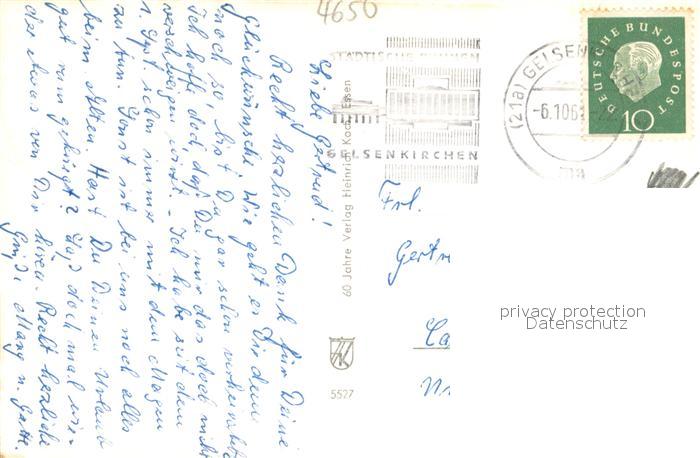 4650
STÄDTISCHE BÜHNEN
GELSENKIRCHEN
(21a) GELSENK
-6.10.61
ma
DEUTSCHE BUNDESPOST
10
Liebe Gertrud!
Recht herzlichen Dank für Deine
Glückwünsche. Wie geht es Dir denn
noch so, bist Du gar schon verheiratet
Ich hoffe doch, daß Du mir das doch nicht
verschweigen wirst. - Ich habe seit dem
1. Sept. schon immer mit dem Magen
zu tun. Sonst ist bei uns noch alles
beim Alten. Hast Du Deinen Urlaub
gut rum gekriegt? Laß doch mal wie-
der etwas von Dir hören. Recht herzliche
Grüße u. Gatte.
60 Jahre Verlag Heinrich Koch, Essen
HK
5527
Frl.
Gertr
Ca
Nr
privacy protection
Datenschutz